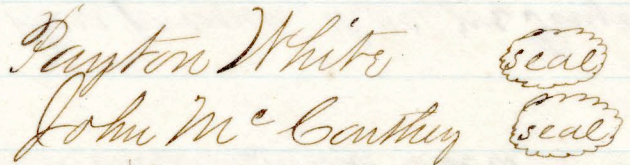 Payton White seal
John Mc Couthey seal